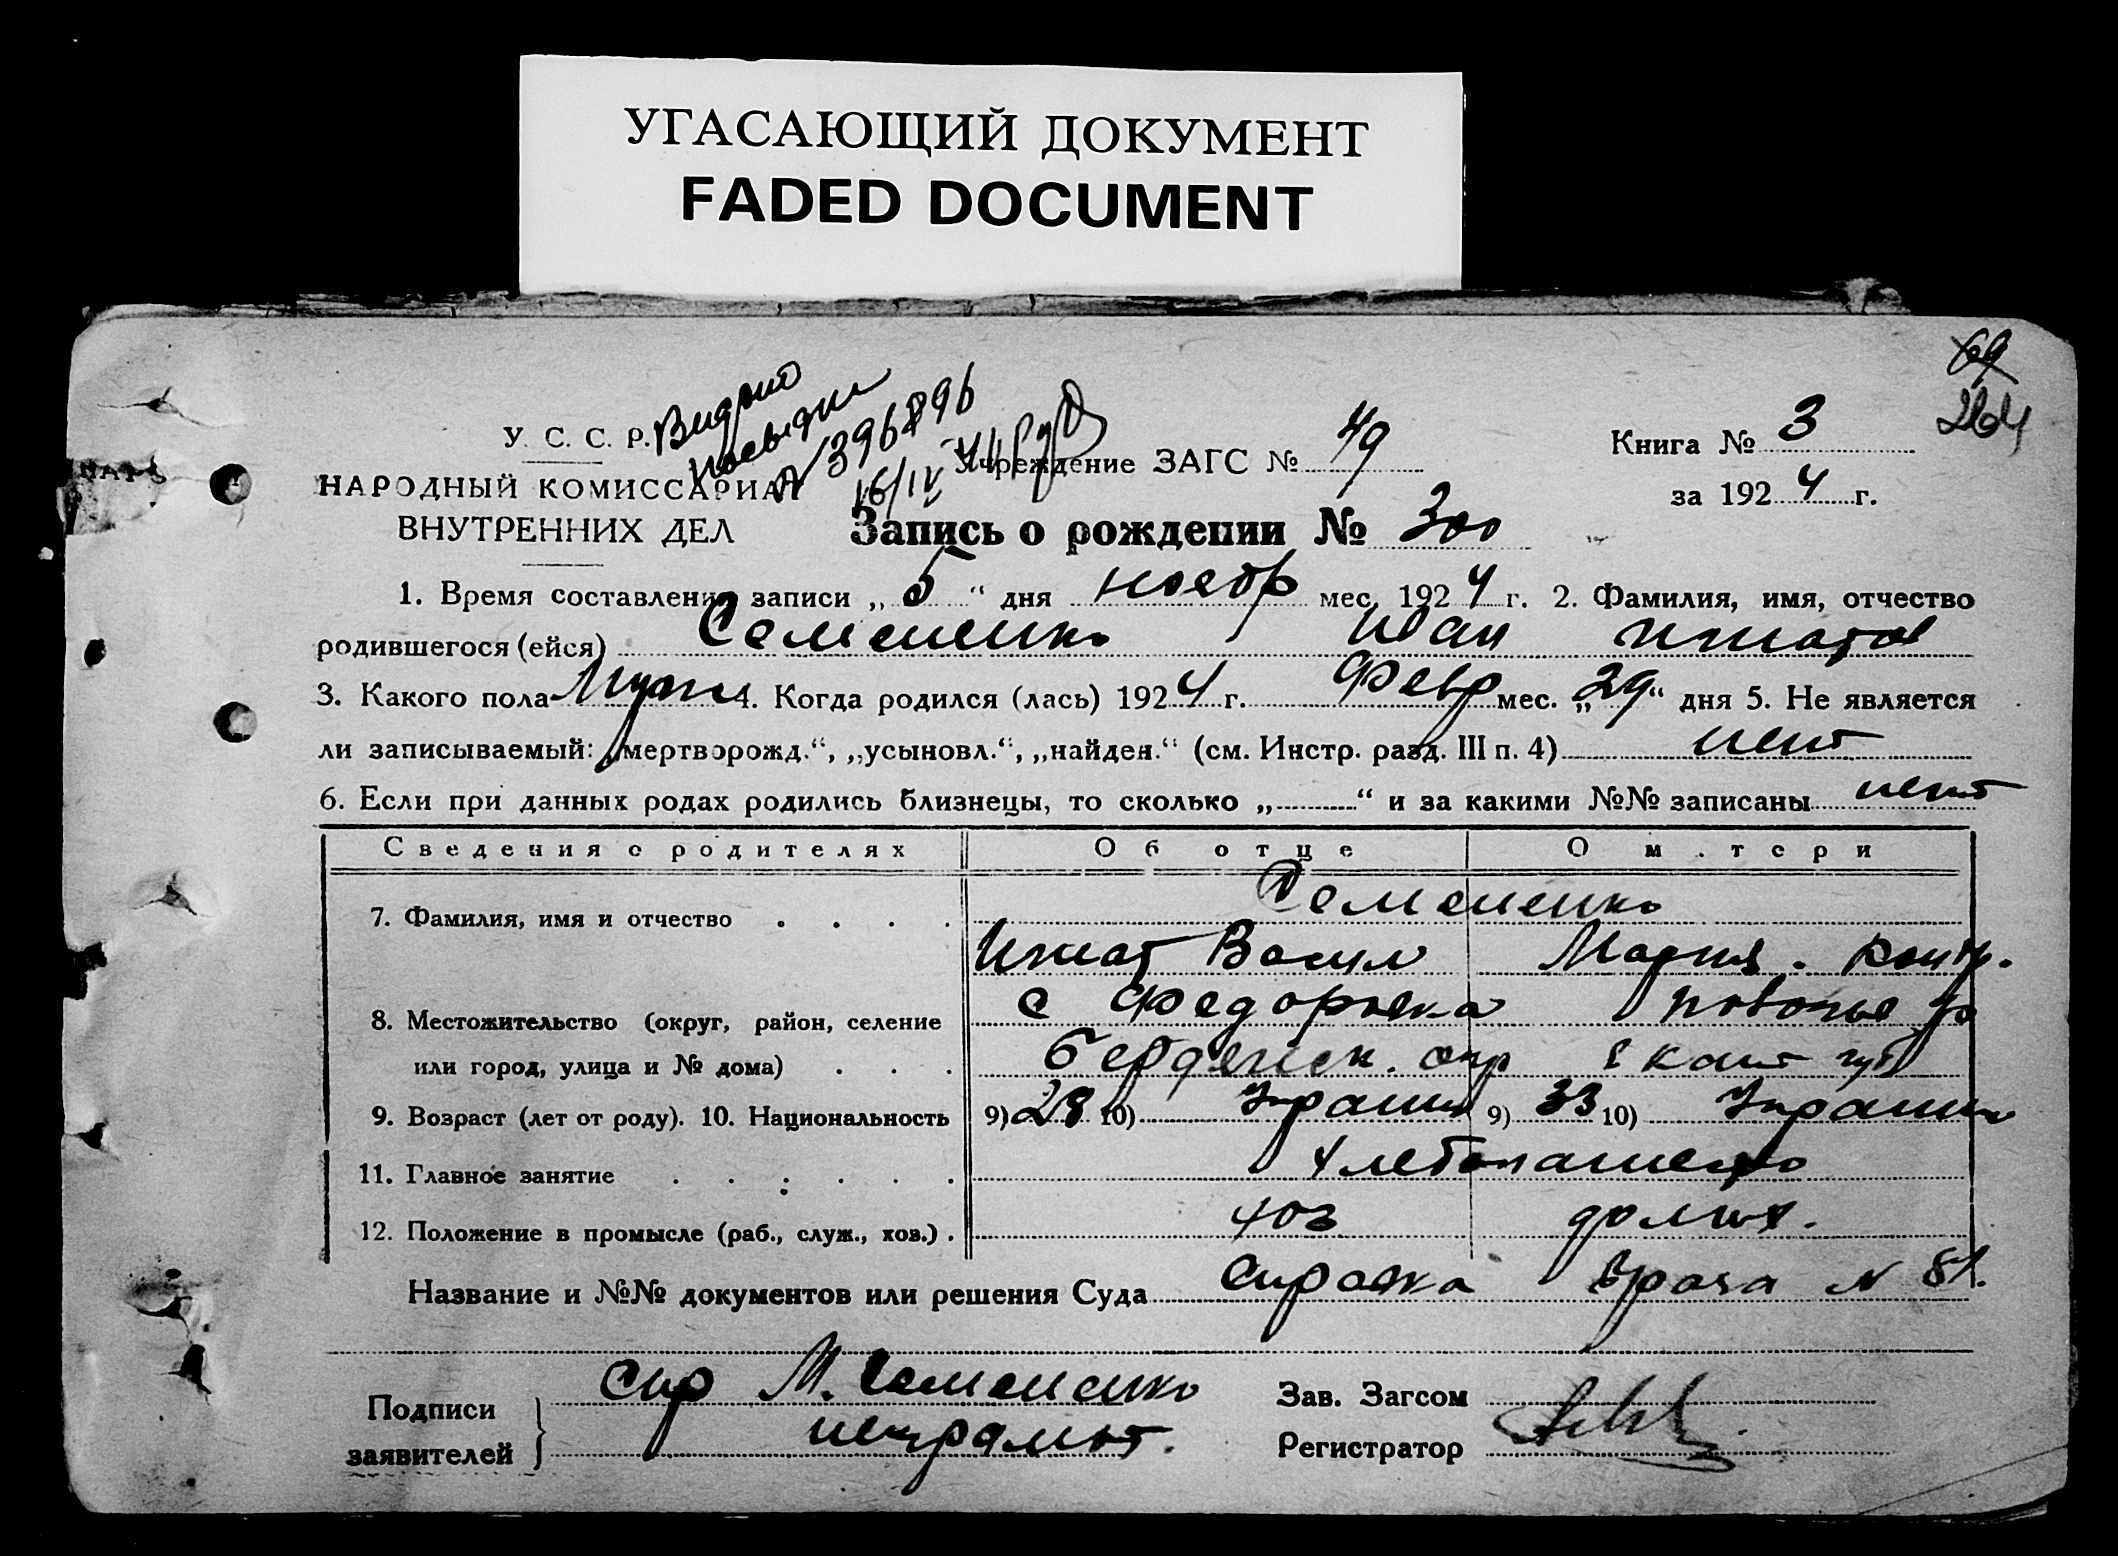 УГАСАЮЩИЙ ДОКУМЕНТ
FADED DOCUMENT
69
264
Видано
№ 396896
16/IV
У. С. С. Р.
НАРОДНЫЙ КОМИССАРИАТ
ВНУТРЕННИХ ДЕЛ
Учреждение ЗАГС № 49
Книга № 3
за 1924 г.
Запись о рождении № 300
1. Время составления записи „5“ дня ноябр мес. 1924 г. 2. Фамилия, имя, отчество
родившегося (ейся) Семененко Иван Игнатов
3. Какого пола Мужс 4. Когда родился (лась) 1924 г. Февр мес. „29“ дня 5. Не является
ли записываемый: „мертворожд.“, „усыновл.“, „найден.“ (см. Инстр. разд. III п. 4) нет
6. Если при данных родах родились близнецы, то сколько „ “ и за какими №№ записаны нет
Сведения о родителях Об отце О м.тери
Семененко
7. Фамилия, имя и отчество
Игнат Васил Мария. Конд.
с Федоровка
8. Местожительство (округ, район, селение
или город, улица и № дома) Бердянск. окр Екат губ
9. Возраст (лет от роду). 10. Национальность 9) 28 10) Украин 9) 33 10) Украин
11. Главное занятие хлебопашество
12. Положение в промысле (раб., служ., хоз.) хоз домих.
Название и №№ документов или решения Суда Справка врача № 81.
Подписи
заявителей
М. Семененко
неграмот.
Зав. Загсом
Регистратор